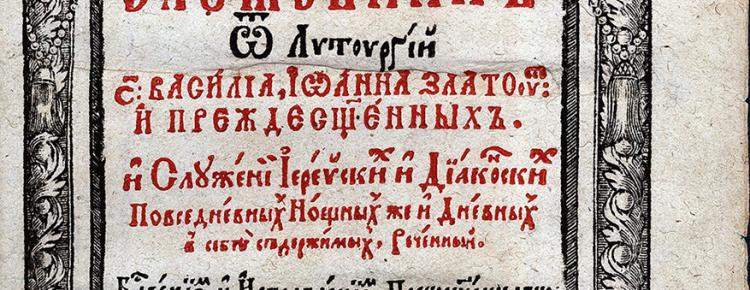 Ѿ Лутоургїй
С҃: ВАСИЛІА, ІѠАННА ЗЛАТОꙋⷭ҇:
И ПРЕЖДЕСЩ҃ЕННЫХЪ.
и Служенїй Іерейскиⷯ и Дїакѡнскиⷯ
Повседневныⷯ Нощныⷯ же и Дневныⷯ
в себѣ съдержимыхъ, Реченный.